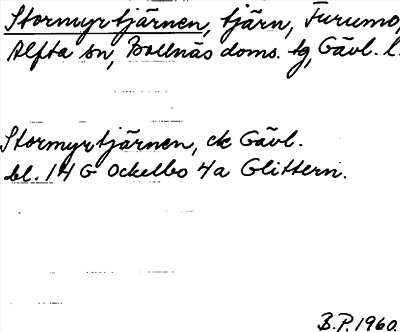 Stormyrtjärnen, tjärn, Furumo,
Alfta sn, Bollnäs doms. tg, Gävl. l.
Stormyrtjärnen, ek Gävl.
bl. 14 G Ockelbo 4a Glittern.
B.P. 1960.